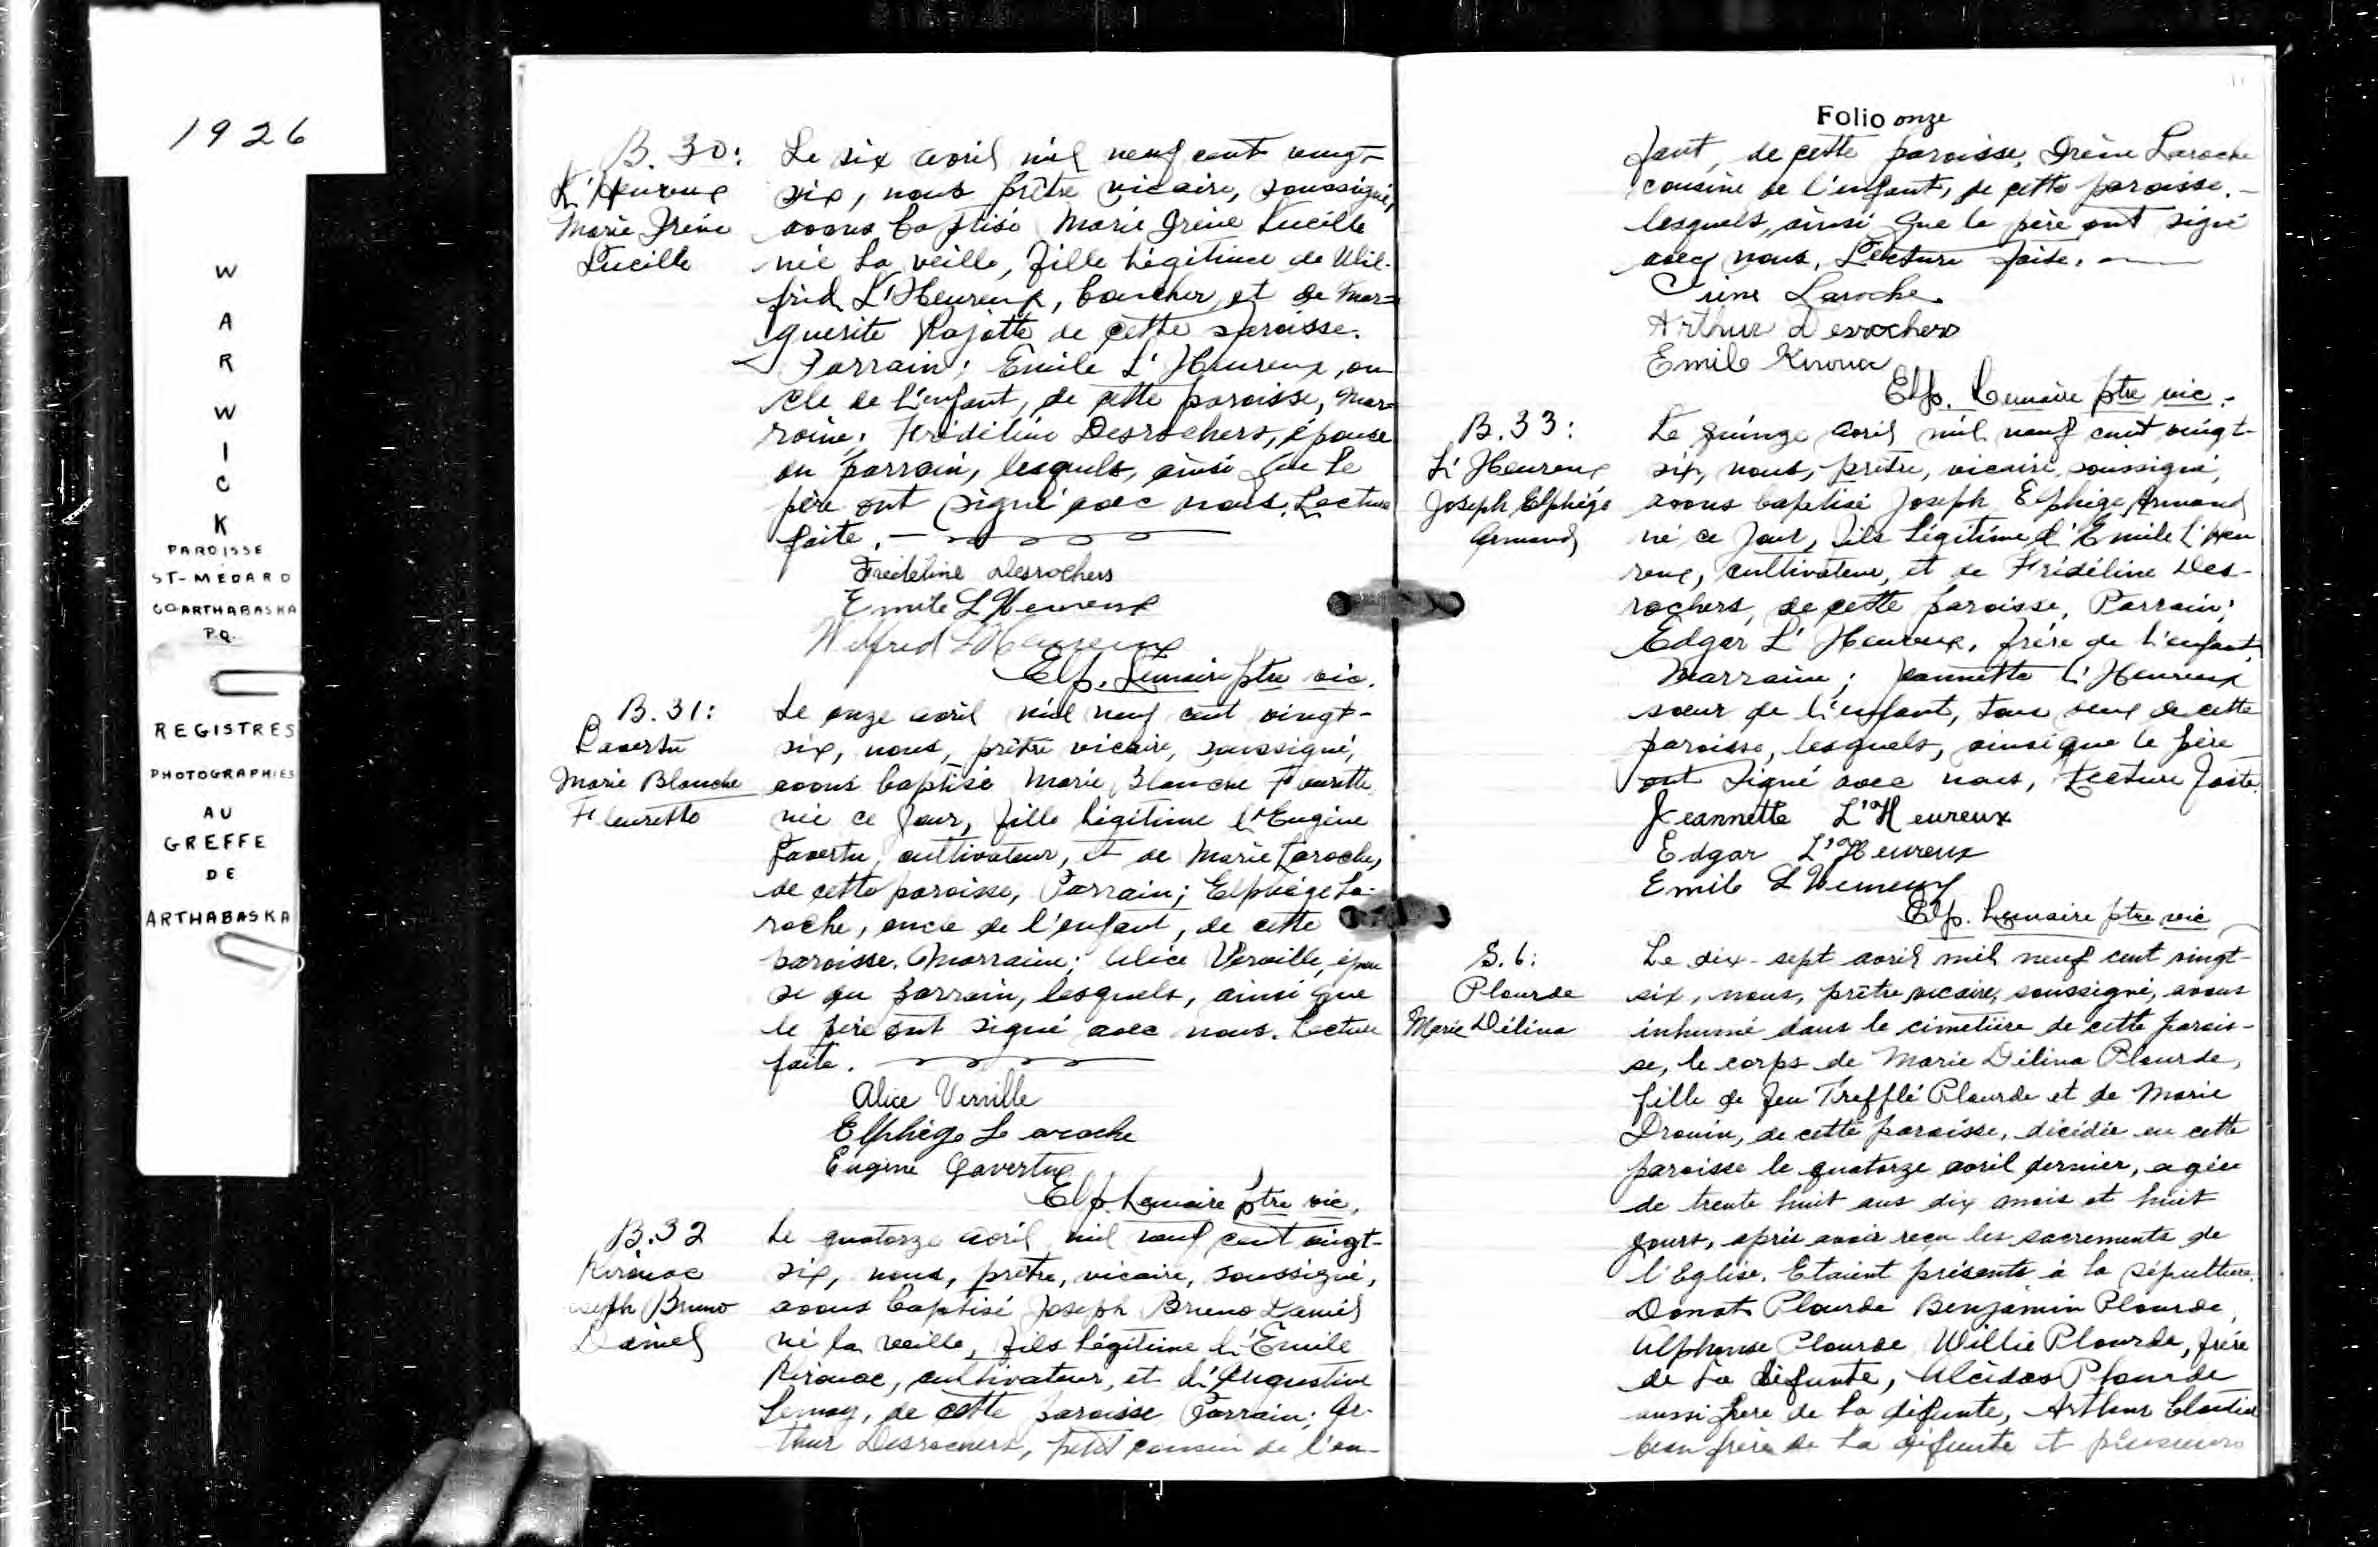 1926
W
A
R
W
I
C
K
PAROISSE
ST-MÉDARD
CO ARTHABASKA
P.Q.
REGISTRES
PHOTOGRAPHIES
AU
GREFFE
DE
ARTHABASKA
B. 30:
L'Heureux
Marie Irène
Lucille
Le six avril mil neuf cent vingt-
six, nous prêtre vicaire, soussigné,
avons baptisé Marie Irène Lucille
née la veille, fille légitime de Wil-
frid L'Heureux, boucher, et de Mar-
guerite Rajotte de cette paroisse.
Parrain; Emile L'Heureux, on
cle de l'enfant, de cette paroisse, mar-
raine; Frédéline Desrochers, épouse
du parrain, lesquels, ainsi que le
père ont signé avec nous. Lecture
faite.
Frédéline Desrochers
Emile L'Heureux
Wilfrid L'Heureux
Elp. Lemaire ptre vic.
B. 31:
Lavertu
Marie Blanche
Fleurette
Le onze avril mil neuf cent vingt-
six, nous, prêtre vicaire, soussigné,
avons baptisé Marie Blanche Fleurette
née ce jour, fille légitime d'Eugène
Lavertu, cultivateur, et de Marie Laroche,
de cette paroisse, Parrain; Elphège La-
roche, oncle de l'enfant, de cette
paroisse. Marraine; Alice Verville, épou
se du parrain, lesquels, ainsi que
le père ont signé avec nous. Lecture
faite.
Alice Verville
Elphège Laroche
Eugène Lavertu
Elp. Lemaire ptre vic.
B. 32
Kirouac
Joseph Bruno
Daniel
Le quatorze avril mil neuf cent vingt-
six, nous, prêtre, vicaire, soussigné,
avons baptisé Joseph Bruno Daniel
né la veille, fils légitime d'Emile
Kirouac, cultivateur, et d'Augustine
Lemay, de cette paroisse Parrain; Ar-
thur Desrochers, petit cousin de l'en-
Folio onze
fant, de cette paroisse, Irène Laroche
cousine de l'enfant, de cette paroisse.
lesquels, ainsi que le père ont signé
avec nous, Lecture faite.
Irène Laroche
Arthur Desrochers
Emile Kirouac
Elp. Lemaire ptre vic.
B. 33:
L'Heureux
Joseph Elphège
Armand
Le quinze avril mil neuf cent vingt-
six, nous, prêtre, vicaire, soussigné,
avons baptisé Joseph Elphège Armand
né ce jour, fils légitime d'Emile L'Heu
reux, cultivateur, et de Frédéline Des-
rochers, de cette paroisse, Parrain;
Edgar L'Heureux, frère de l'enfant
Marraine; Jeannette L'Heureux
sœur de l'enfant, tous deux de cette
paroisse, lesquels, ainsi que le père
ont signé avec nous, Lecture faite.
Jeannette L'Heureux
Edgar L'Heureux
Emile L'Heureux
Elp. Lemaire ptre vic
S. 6:
Plourde
Marie Délina
Le dix-sept avril mil neuf cent vingt-
six, nous, prêtre vicaire, soussigné, avons
inhumé dans le cimetière de cette parois-
se, le corps de Marie Délina Plourde,
fille de feu Trefflé Plourde et de Marie
Drouin, de cette paroisse, décédée en cette
paroisse le quatorze avril dernier, agée
de trente huit ans dix mois et huit
jours, après avoir reçu les sacrements de
l'Eglise. Etaient présents à la sépulture
Donat Plourde Benjamin Plourde,
Alphonse Plourde Willie Plourde, frère
de la défunte, Alcidas Plourde
aussi frère de la défunte, Arthur
beau frère de la défunte et plusieurs